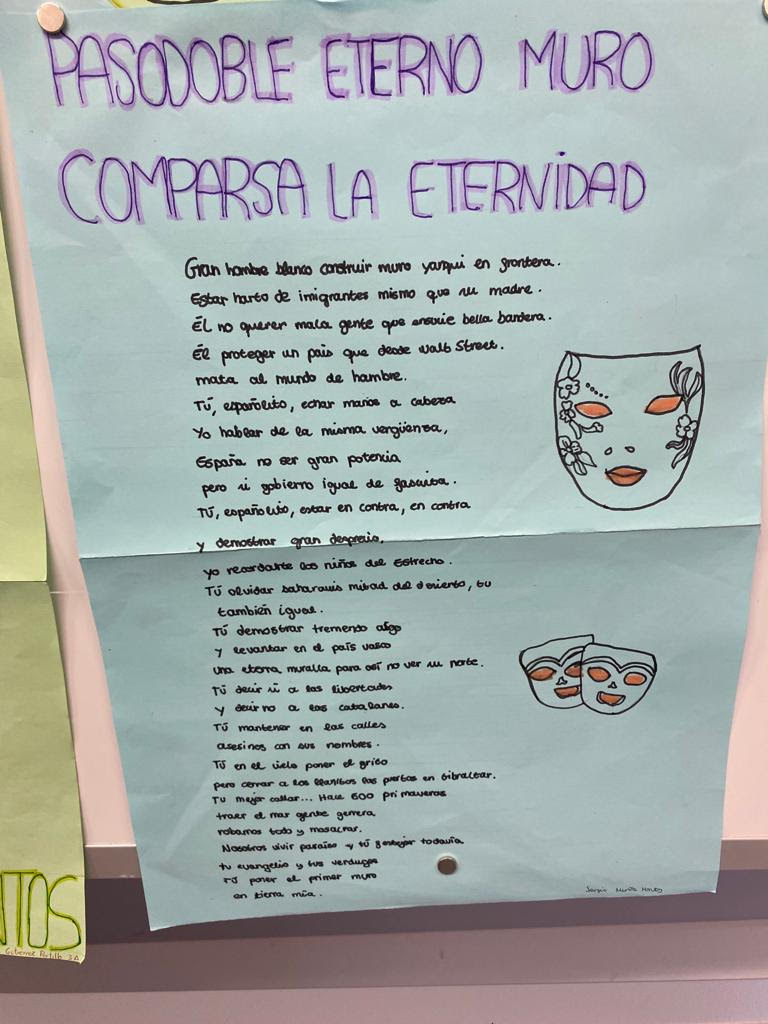 PASODOBLE ETERNO MURO
COMPARSA LA ETERNIDAD
Gran hombre blanco construir muro yanqui en frontera.
Estar harto de imigrantes mismo que su madre.
Él no querer mala gente que ensucie bella bandera.
Él proteger un país que desde Wall Street.
mata al mundo de hambre.
Tú, españolito, echar manos a cabeza
Yo hablar de la misma vergüenza,
España no ser gran potencia
pero si gobierno igual de fascista.
Tú, españolito, estar en contra, en contra
y demostrar gran desprecio.
yo recordarte los niños del Estrecho.
Tú olvidar saharauis mitad del desierto, tu
también igual.
Tú demostrar tremendo asgo
y levantar en el país vasco
una eterna muralla para así no ver su norte.
Tú decir si a las libertades
y decir no a los catalanes.
Tú mantener en las calles
asesinos con sus nombres.
Tú en el cielo poner el grito
pero cerrar a los llanitos las puertas en Gibraltar.
Tu mejor callar... Hace 500 primaveras
traer el mar gente guerrera
robarnos todo y masacrar.
Nosotros vivir paraíso y tú festejar todavía
tu evangelio y tus verdugos
Tú poner el primer muro
en tierra mía.
Sergio
NTOS
Gutierrez Portillo 3A